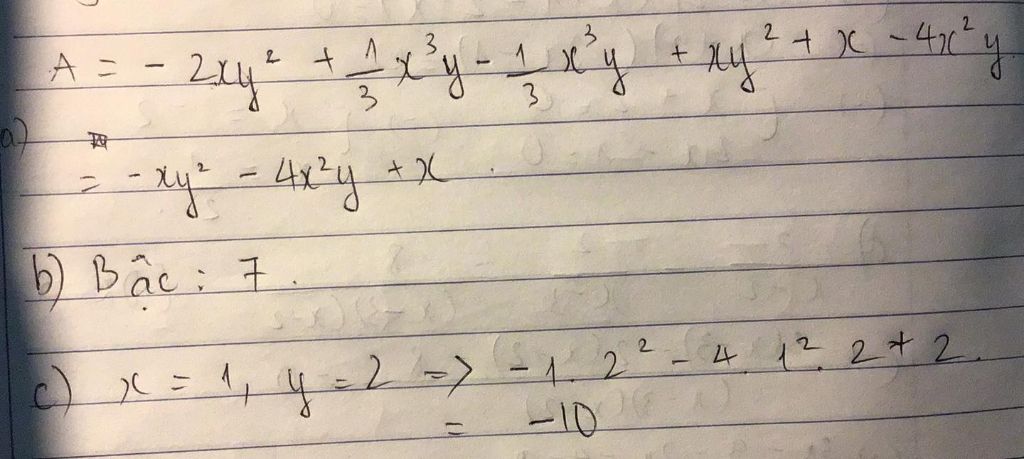 A = - 2xy² + 1/3 x³y - 1/3 x³y + xy² + x - 4x²y
a)
= - xy² - 4x²y + x .
b) Bậc : 7 .
c) x = 1, y = 2 => - 1. 2² - 4. 1². 2 + 2.
= -10